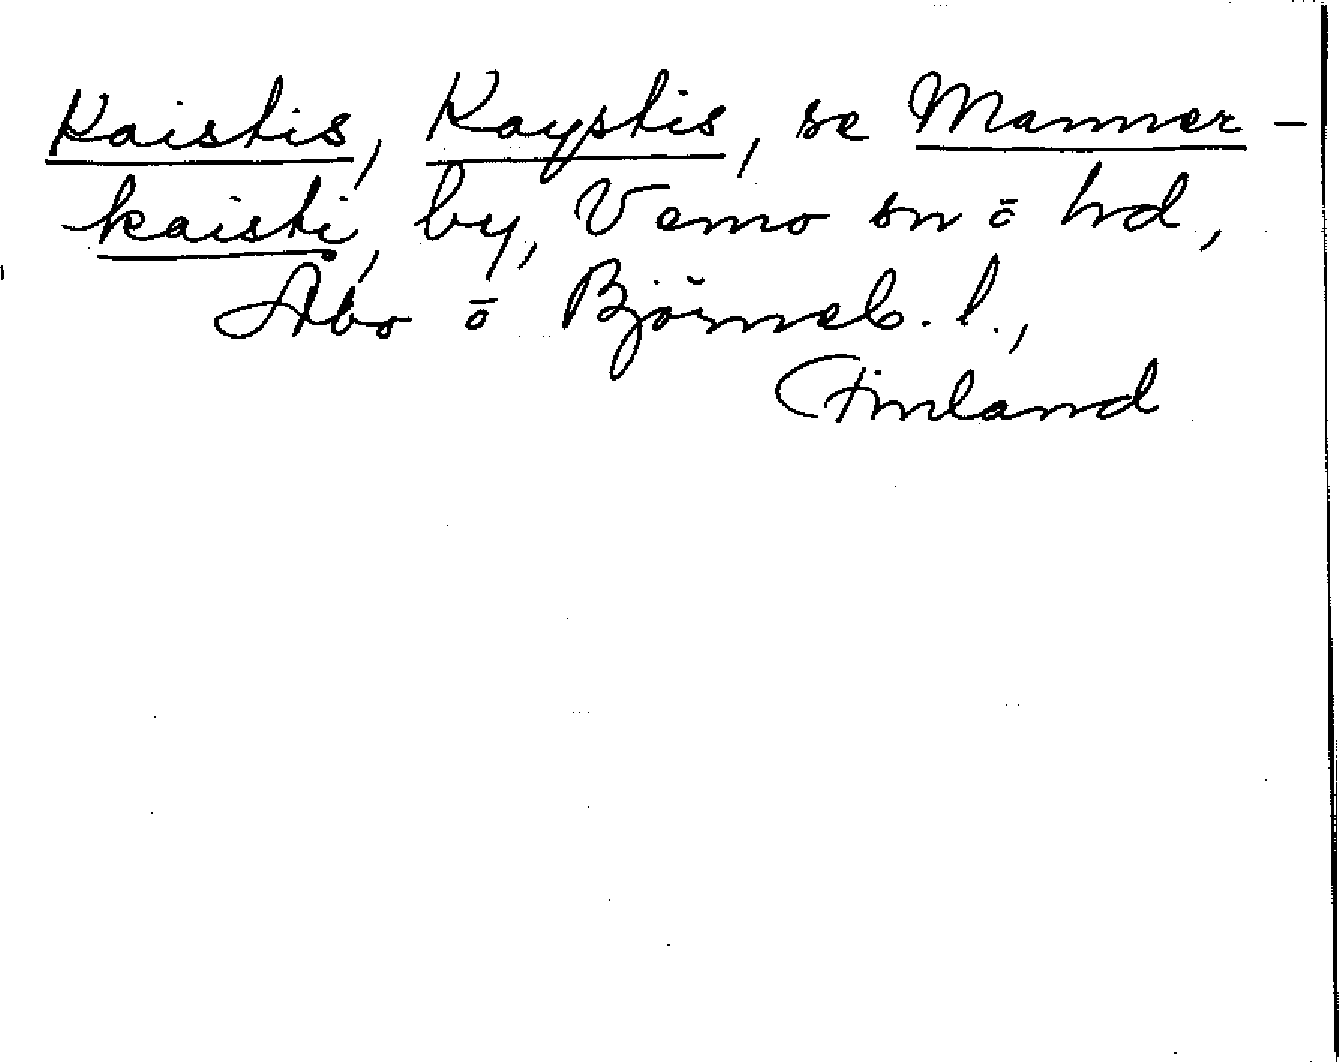 Kaistis, Kaystis, se Manner-
kaisti, by, Vemo sn ō hd,
Åbo ō Björneb. l.,
Finland